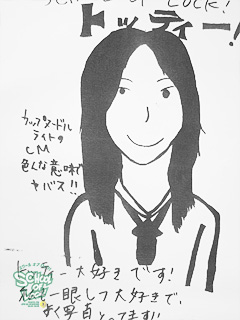 LOCK!
トッティー!
カップヌードル
ライトの
CM
色んな意味で
ヤバス!!
トッティー大好きです!
一眼レフ大好きで、
よく写真とってます!!